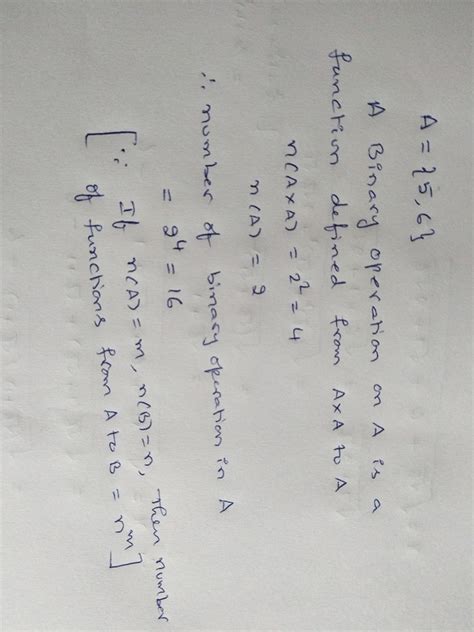 A = {5,6}
A Binary operation on A is a
function defined from A×A to A
n(A×A) = 2² = 4
n(A) = 2
∴ number of binary operation in A
= 2⁴ = 16
[∵ If n(A)=m, n(B)=n, then number
of functions from A to B = nᵐ]